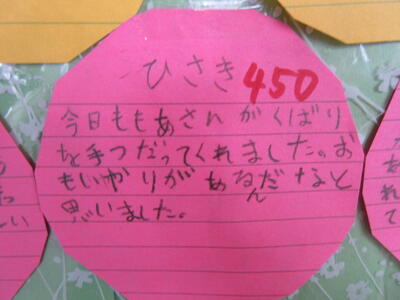 ひさき 450
今日ももあさんがくばり
を手つだってくれました。お
もいやりがあるんだなと
思いました。